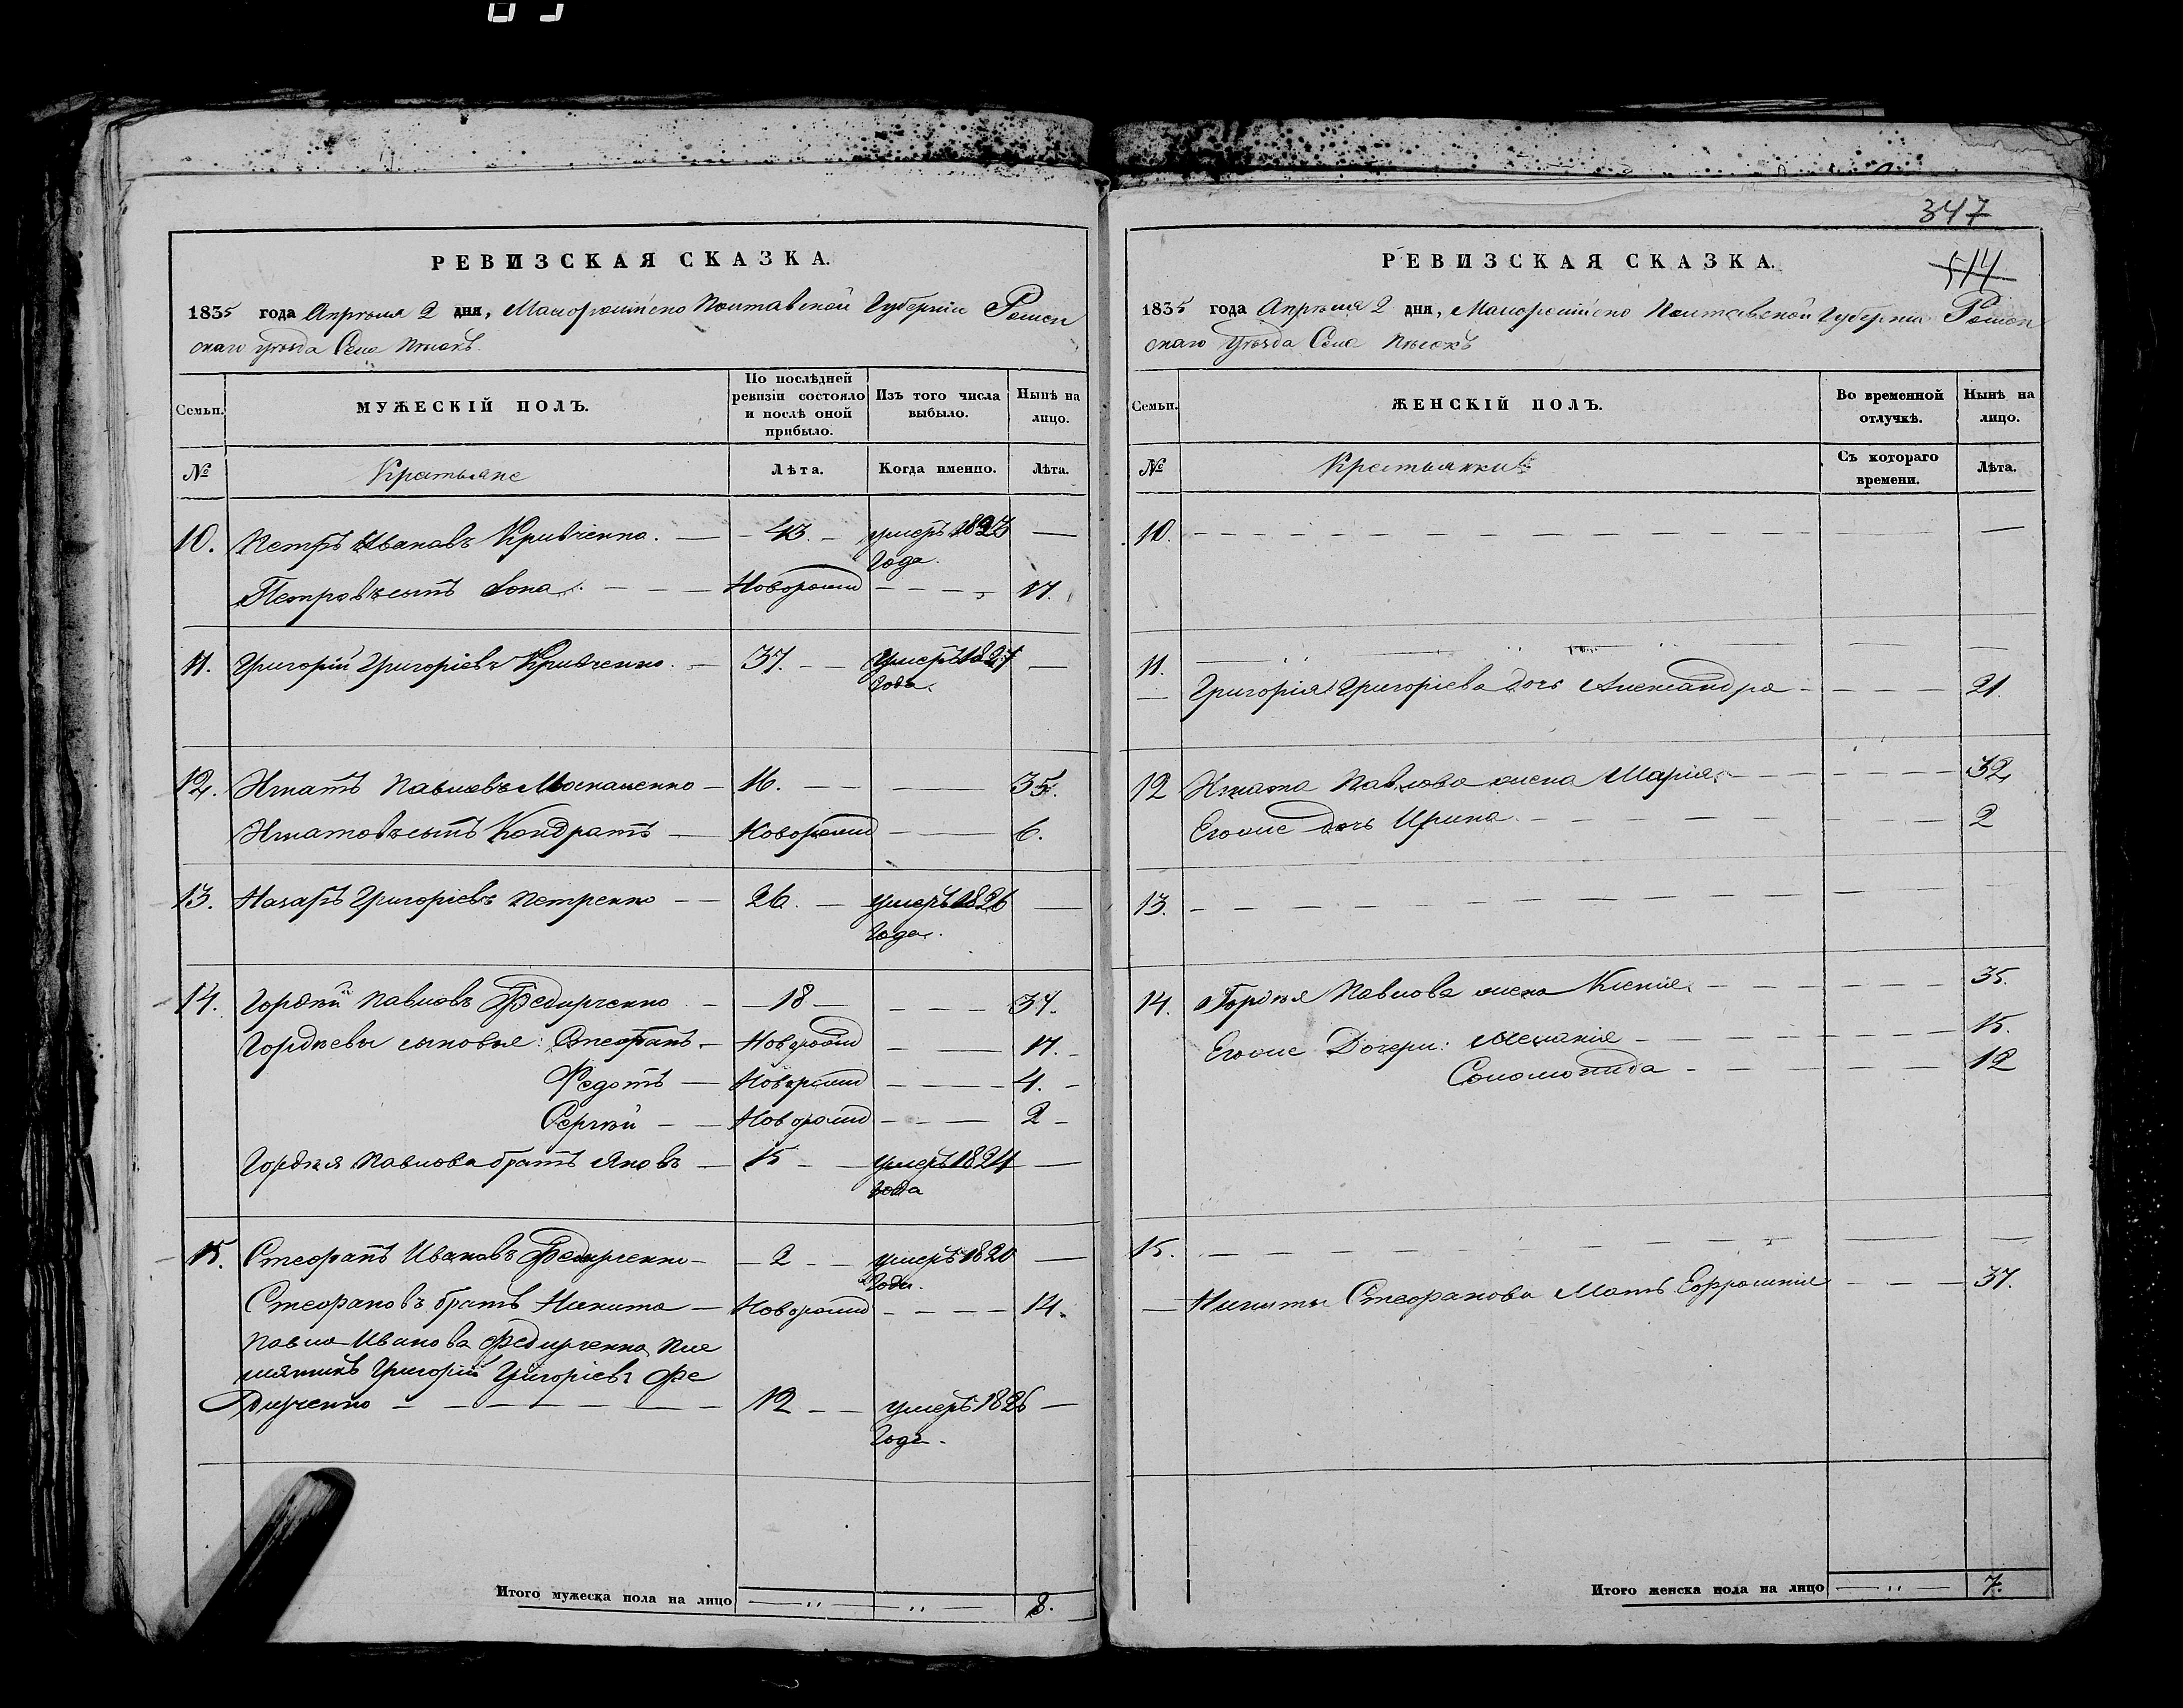 347
514
РЕВИЗСКАЯ СКАЗКА.
1835 года Апрѣля 2 дня, Малороссійско Полтавской Губерніи Ромен
скаго уѣзда Села Пѣсокъ
Семьи.
МУЖЕСКІЙ ПОЛЪ.
По послѣдней
ревизіи состояло
и послѣ оной
прибыло.
Изъ того числа
выбыло.
Нынѣ на
лицо.
№
Крестьяне
Лѣта.
Когда именно.
Лѣта.
10. Петръ Ивановъ Кривченко. — 43. — умеръ 1823 —
Года.
Петровъ сынъ Іона — Новорожд — 17.
11. Григорій Григоріевъ Кривченко. — 37. — Умеръ 1827 —
Года.
12. Игнатъ Павловъ Москаленко — 16. — 35.
Игнатовъ сынъ Кондратъ — Новорожд — 6.
13. Назаръ Григоріевъ Петренко — 26. — умеръ 1826 —
Года.
14. Гордѣй Павловъ Федирченко — 18 — 37.
Гордѣевы сыновья: Стефанъ — Новорожд — 17.
Федотъ — Новорожд — 4.
Сергѣй — Новорожд — 2
Гордѣя Павлова братъ Яковъ — 15 — умеръ 1824 —
года
15. Стефанъ Ивановъ Федирченко — 2 — умеръ 1820 —
Года.
Стефановъ братъ Никита — Новорожд — 14.
Павла Иванова Федирченка Пле
мянникъ Григорій Григоріевъ Фе
дирченко — 12 — умеръ 1826 —
Года.
Итого мужеска пола на лицо — " — " — 8.
РЕВИЗСКАЯ СКАЗКА.
1835 года Апрѣля 2 дня, Малороссійско Полтавской Губерніи Ромен
скаго Уѣзда Села Пѣсокъ
Семьи.
ЖЕНСКІЙ ПОЛЪ.
Во временной
отлучкѣ.
Нынѣ на
лицо.
№
Крестьянки
Съ котораго
времени.
Лѣта.
10. —
11. —
Григорія Григоріева дочь Александра — 21.
12 Игната Павлова жена Марія — 32
Егоже дочь Ирина — 2
13. —
14. Гордѣя Павлова жена Ксенія — 35.
Егоже Дочери: Меланія — 15.
Соломонида — 12
15. —
Никиты Стефанова Мать Ефросинія — 37.
Итого женска пола на лицо — " — 7.